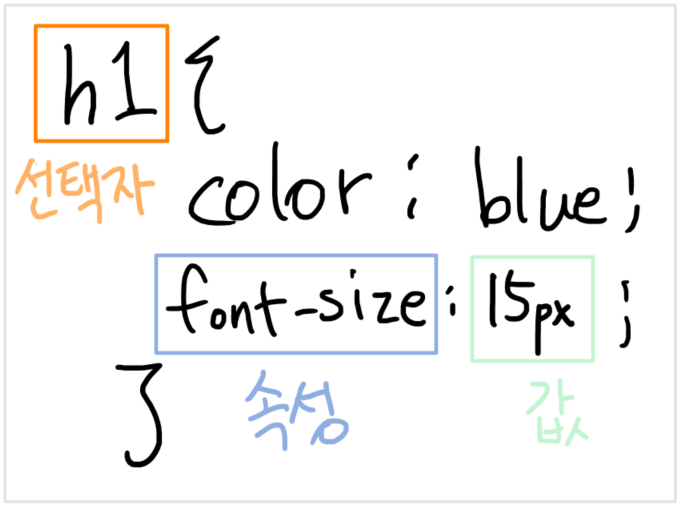 h1{
선택자
color: blue;
font-size: 15px;
}
속성
값